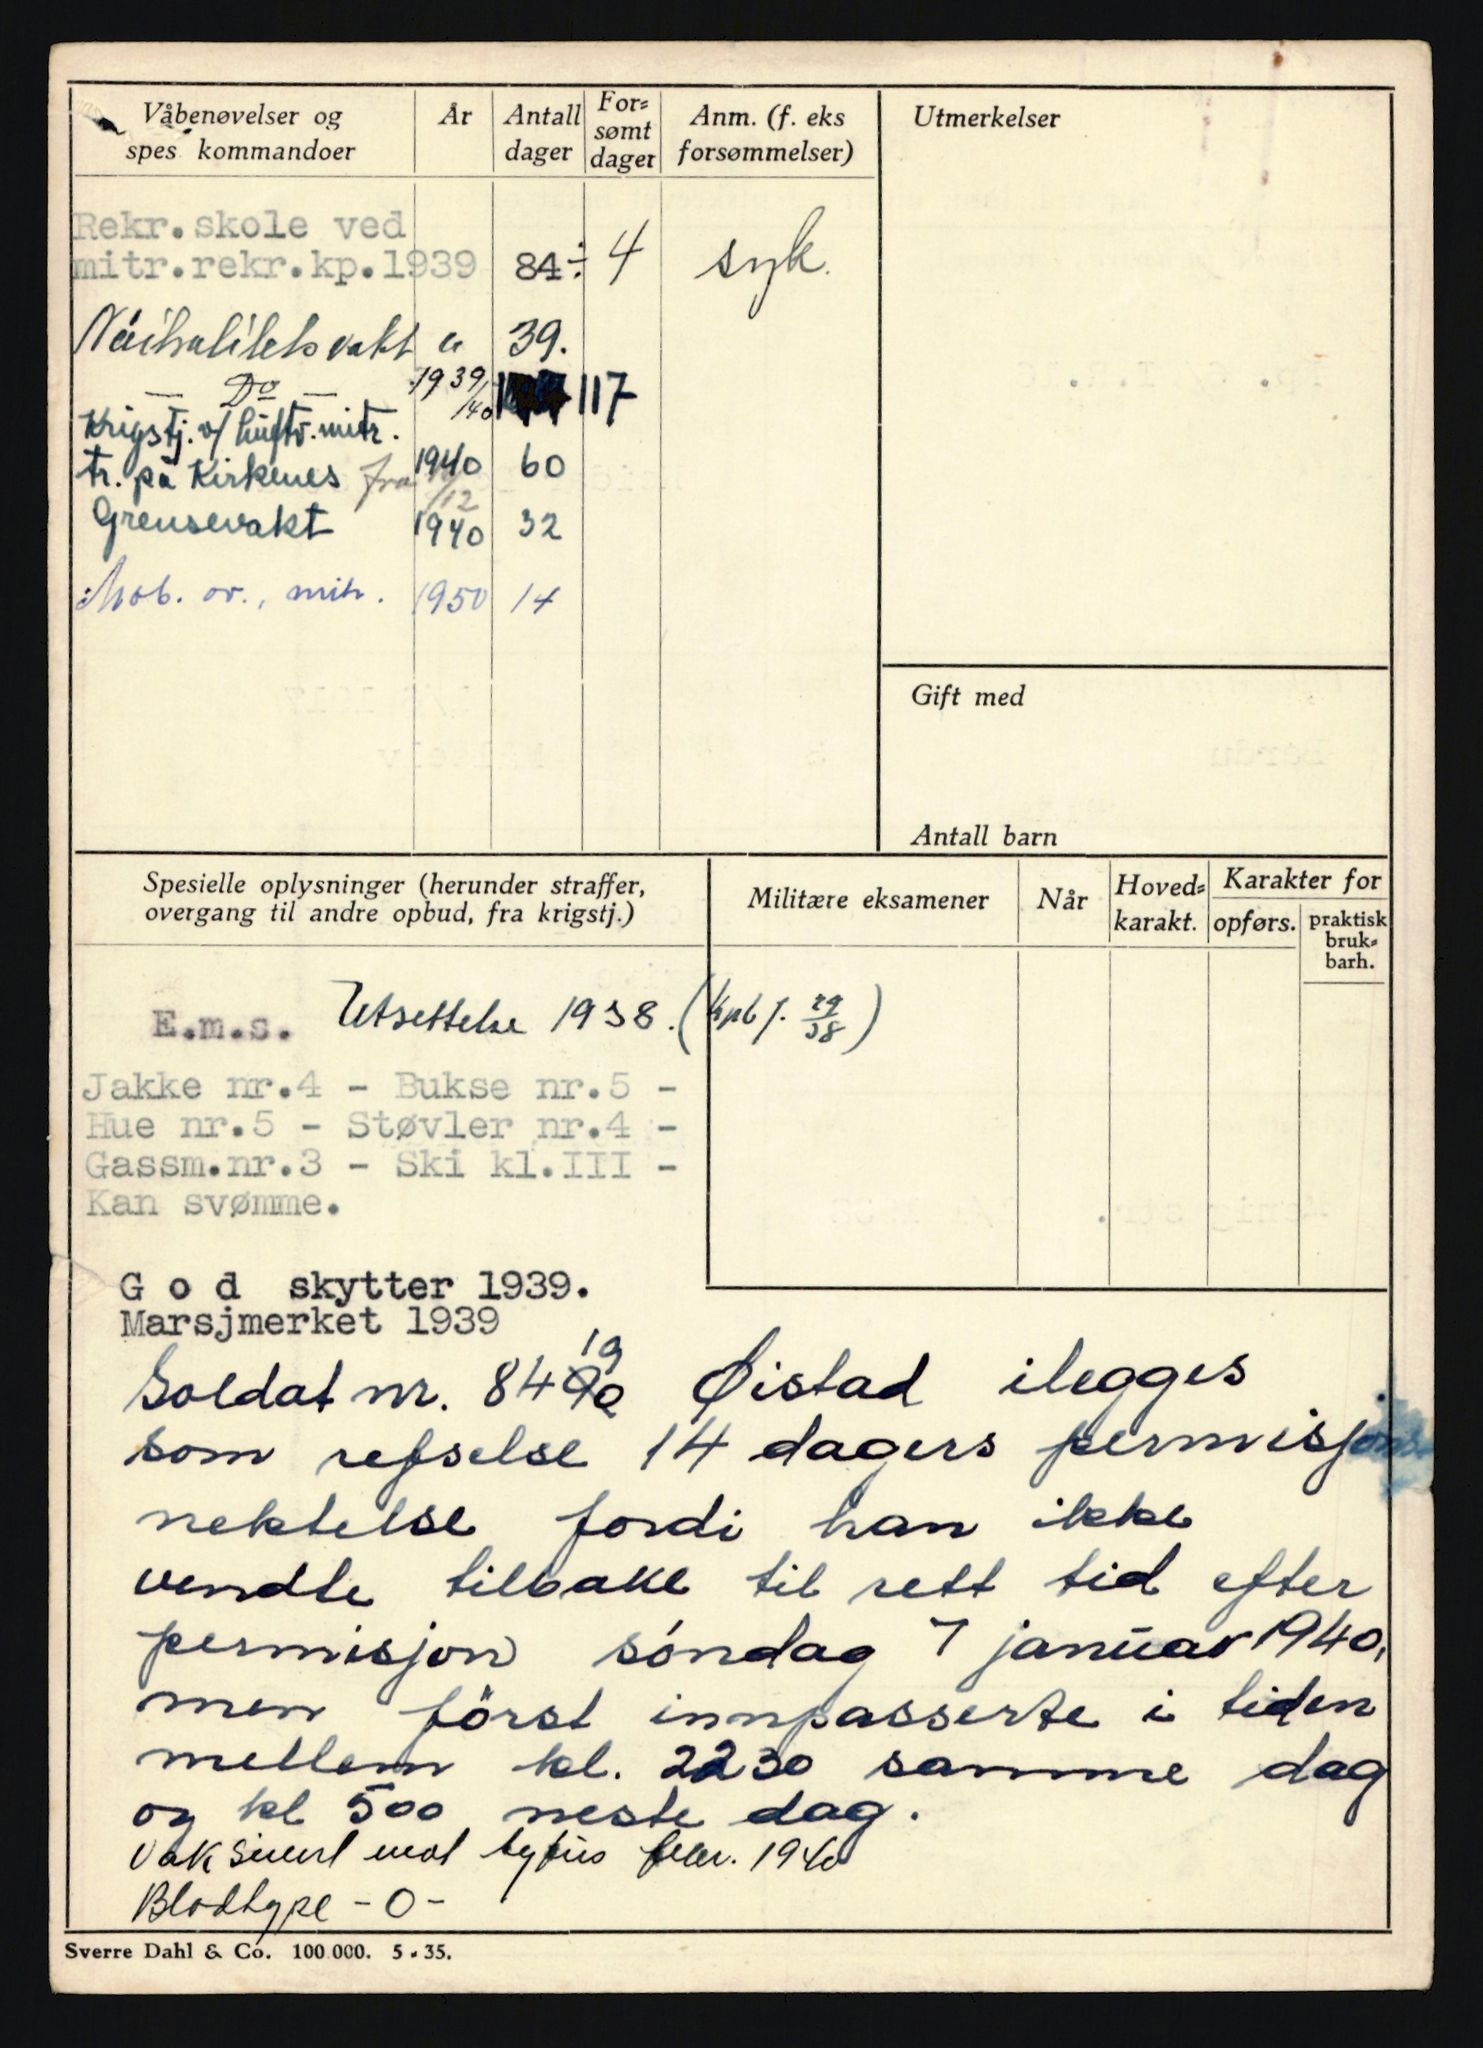 Våbenøvelser og
spes kommandoer
År
Antall
dager
For=
sømt
dager
Anm. (f. eks
forsømmelser)
Utmerkelser
Rekr.skole ved
mitr.rekr.kp.1939 84÷ 4 syk.
Nøitralitetsvakt " 39.
— Do — 1939/40 117
Krigstj. v/ luftv.mitr.
tr. på Kirkenes fra 1940 60
/12
Grensevakt 1940 32
Mob. øv., mitr. 1950 14
Gift med
Antall barn
Spesielle oplysninger (herunder straffer,
overgang til andre opbud, fra krigstj.)
Militære eksamener
Når
Hoved=
karakt.
Karakter for
opførs.
praktisk
bruk=
barh.
E.m.s. Utsettelse 1938. (Kpb j. 29/38)
Jakke nr.4 - Bukse nr.5 -
Hue nr.5 - Støvler nr.4 -
Gassm.nr.3 - Ski kl.III -
Kan svømme.
G o d skytter 1939.
Marsjmerket 1939
19
Soldat nr. 84 Øistad ilegges
som refselse 14 dagers permisjons
nektelse fordi han ikke
vendte tilbake til rett tid efter
permisjon söndag 7 januar 1940,
men först innpasserte i tiden
mellem kl. 2230 samme dag
og kl 500 neste dag.
Vaksinert mot tyfus febr. 1940
Blodtype - O -
Sverre Dahl & Co. 100.000. 5-35.